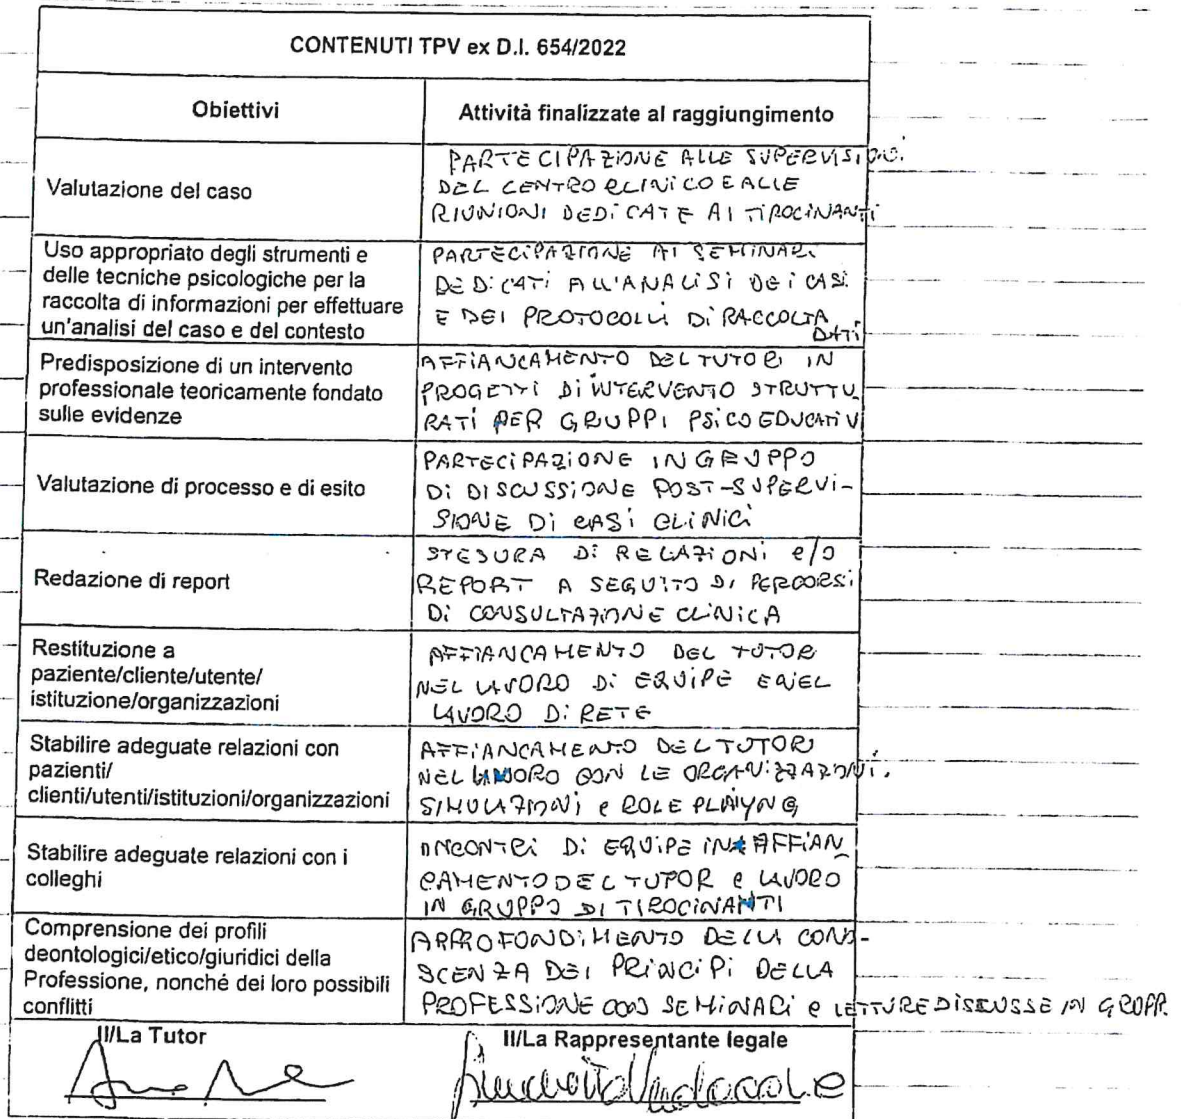 CONTENUTI TPV ex D.I. 654/2022
Obiettivi
Attività finalizzate al raggiungimento
Valutazione del caso
PARTECIPAZIONE ALLE SUPERVISIONI
DEL CENTRO CLINICO E ALLE
RIUNIONI DEDICATE AI TIROCINANTI
Uso appropriato degli strumenti e
delle tecniche psicologiche per la
raccolta di informazioni per effettuare
un'analisi del caso e del contesto
PARTECIPAZIONE AI SEMINARI
DEDICATI ALL'ANALISI DEI CASI
E DEI PROTOCOLLI DI RACCOLTA
DATI
Predisposizione di un intervento
professionale teoricamente fondato
sulle evidenze
AFFIANCAMENTO DEL TUTOR IN
PROGETTI DI INTERVENTO STRUTTU-
RATI PER GRUPPI PSICOEDUCATIVI
Valutazione di processo e di esito
PARTECIPAZIONE IN GRUPPO
DI DISCUSSIONE POST-SUPERVI-
SIONE DI CASI CLINICI
Redazione di report
STESURA DI RELAZIONI e/o
REPORT A SEGUITO DI PERCORSI
DI CONSULTAZIONE CLINICA
Restituzione a
paziente/cliente/utente/
istituzione/organizzazioni
AFFIANCAMENTO DEL TUTOR
NEL LAVORO DI EQUIPE E NEL
LAVORO DI RETE
Stabilire adeguate relazioni con
pazienti/
clienti/utenti/istituzioni/organizzazioni
AFFIANCAMENTO DEL TUTOR
NEL LAVORO CON LE ORGANIZZAZIONI.
SIMULAZIONI e ROLE PLAIYNG
Stabilire adeguate relazioni con i
colleghi
INCONTRI DI EQUIPE IN AFFIAN_
CAMENTO DEL TUTOR e LAVORO
IN GRUPPO DI TIROCINANTI
Comprensione dei profili
deontologici/etico/giuridici della
Professione, nonché dei loro possibili
conflitti
APPROFONDIMENTO DELLA CONO-
SCENZA DEI PRINCIPI DELLA
PROFESSIONE CON SEMINARI e LETTURE DISCUSSE IN GRUPP.
Il/La Tutor
Il/La Rappresentante legale